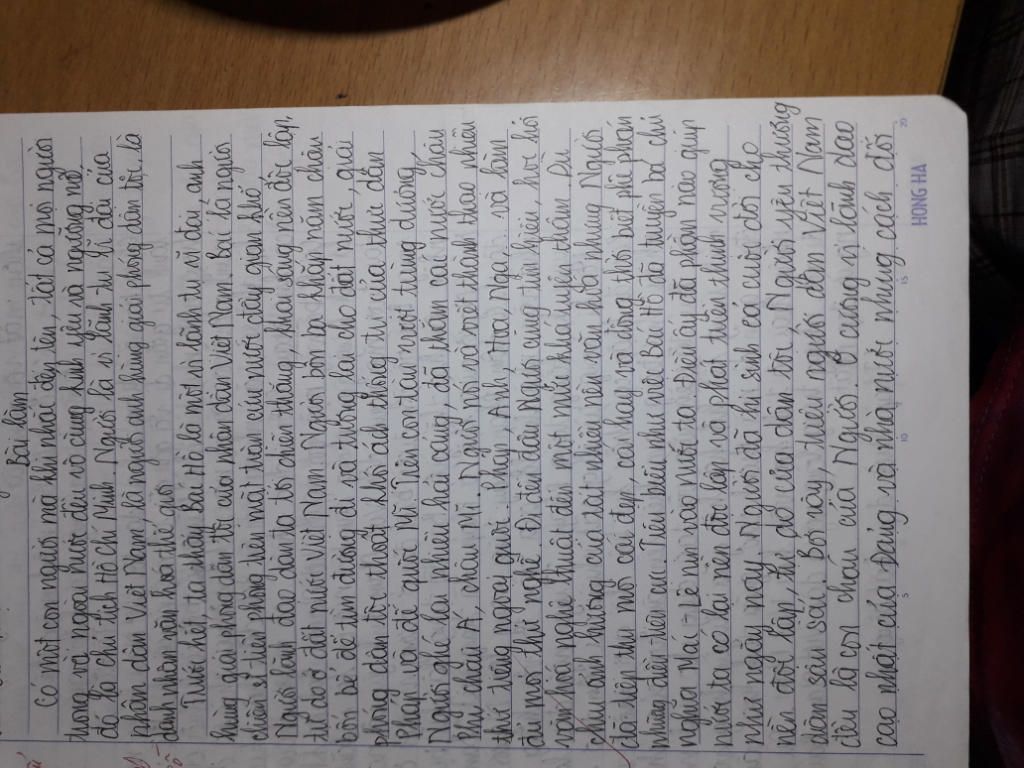 Bài làm
Có một con người mà khi nhắc đến tên, tất cả mọi người
trong và ngoài nước đều vô cùng kính yêu và ngưỡng mộ
đó là chủ tịch Hồ Chí Minh. Người là vị lãnh tụ vĩ đại của
nhân dân Việt Nam, là người anh hùng giải phóng dân tộc, là
danh nhân văn hoá thế giới
Trước hết, ta thấy Bác Hồ là một vị lãnh tụ vĩ đại, anh
hùng giải phóng dân tộc của nhân dân Việt Nam. Bác là người
chiến sĩ tiên phong trên mặt trận cứu nước đầy gian khó.
Người lãnh đạo dân ta tới chiến thắng, khai sáng nền độc lập,
tự do ở đất nước Việt Nam. Người bôn ba khắp năm châu
bốn bể để tìm đường đi và tương lai cho đất nước, giải
phóng dân tộc thoát khỏi ách thống trị của thực dân
Pháp và đế quốc Mĩ. Trên con tàu vượt trùng dương,
Người ghé lại nhiều hải cảng, đã thăm các nước châu
Phi, châu Á, châu Mĩ. Người nói và viết thành thạo nhiều
thứ tiếng ngoại quốc: Pháp, Anh, Hoa, Nga, và làm
đủ mọi thứ nghề. Đi đến đâu Người cũng tìm hiểu, học hỏi
văn hóa nghệ thuật đến một mức khá uyên thâm. Dù
chịu ảnh hưởng của tất nhiều nền văn hóa nhưng Người
đã tiếp thu mọi cái đẹp, cái hay và đồng thời biết phê phán
những điều tiêu cực. Tiêu biểu như việc Bác Hồ đã truyền bá chủ
nghĩa Mác - Lê nin vào nước ta. Điều ấy đã phần nào giúp
nước ta có lại nền độc lập và phát triển thịnh vượng
như ngày nay. Người đã hi sinh cả cuộc đời cho
nền độc lập, tự do của dân tộc. Người yêu thương
dân sâu sắc. Bởi vậy, triệu người dân Việt Nam
đều là con cháu của Người. Ở cương vị lãnh đạo
cao nhất của Đảng và nhà nước nhưng cách đối
5
10
15
20
HONG HA